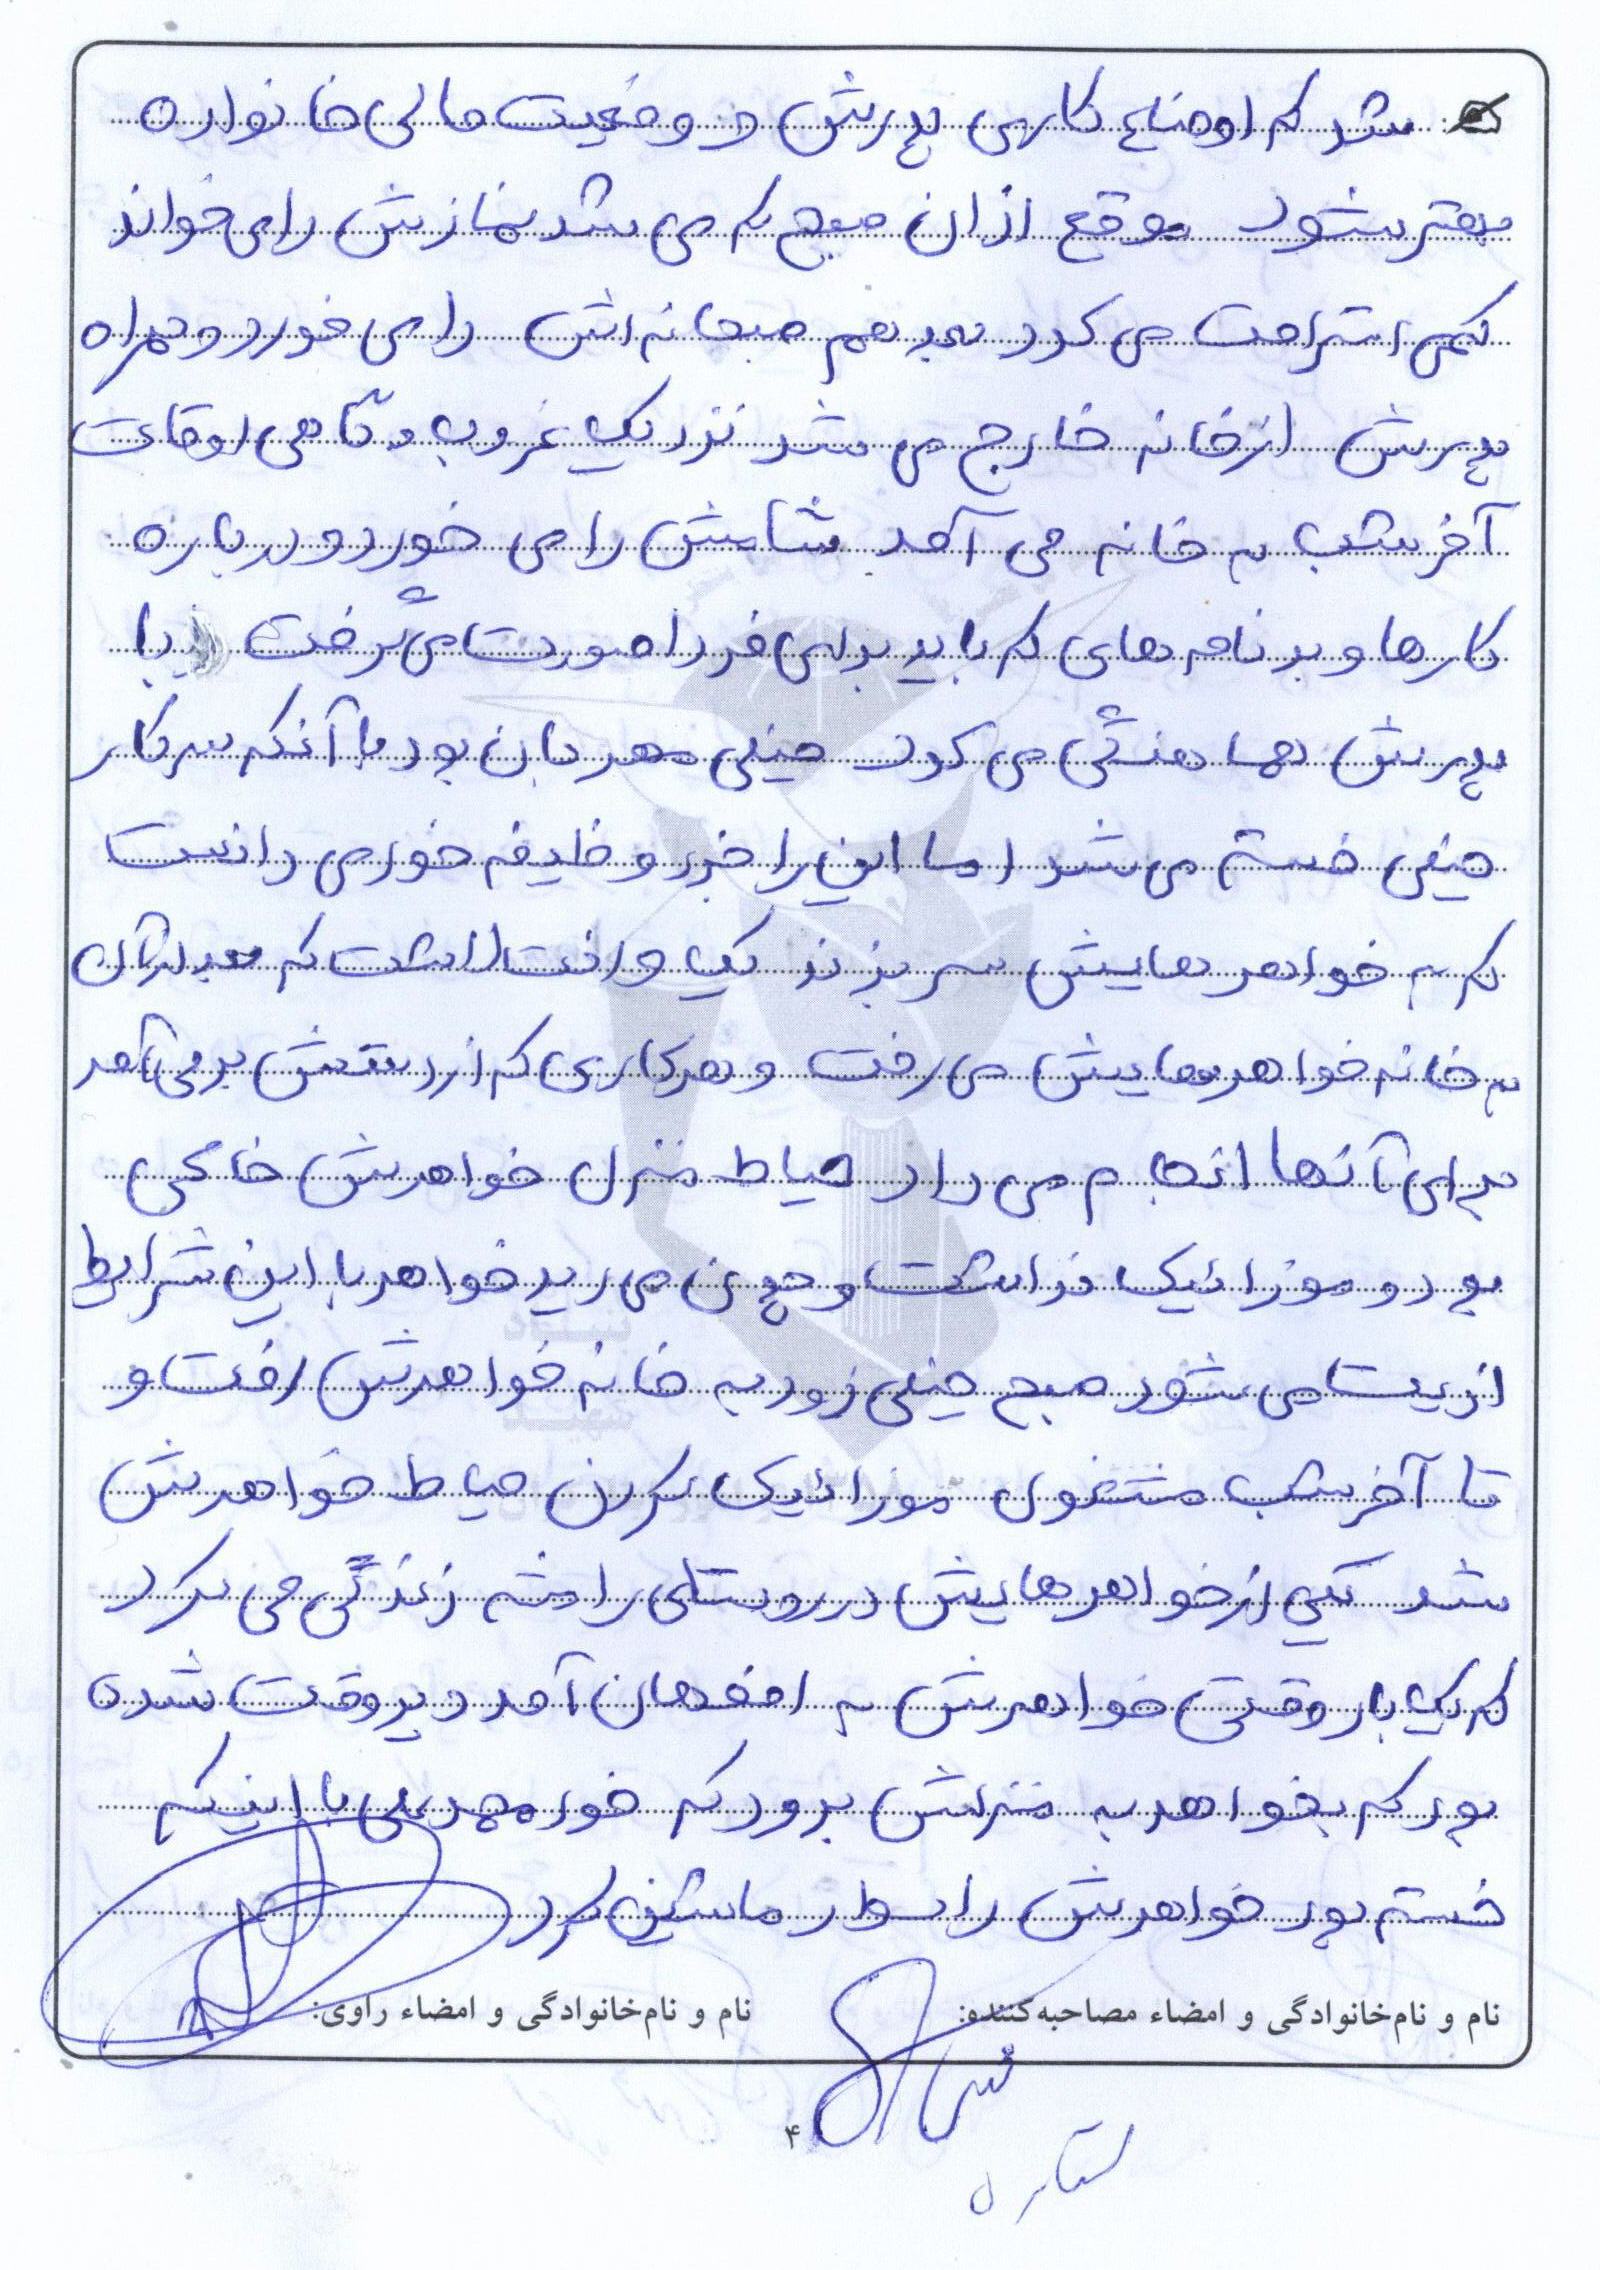 شد که اوضاع کاری پدرش و وضعیت مالی خانواده
بهتر شود موقع اذان صبح که می شد نمازش را می خواند
کمی استراحت می کرد بعد هم صبحانه اش را می خورد و همراه
پدرش از خانه خارج می شد نزدیک غروب و گاهی اوقات
آخر شب به خانه می آمد شامش را می خورد و درباره
کارها و برنامه های که باید برای فردا صورت می گرفت با
پدرش هماهنگی می کرد خیلی مهربان بود با آنکه سر کار
خیلی خسته می شد اما این را جزء وظیفه خود می دانست
که به خواهرهایش سر بزند یک وانت داشت که
به خانه خواهرهایش می رفت و هر کاری که از دستش بر می آمد
برای آنها انجام می داد حیاط منزل خواهرش خاکی
بود و موزائیک نداشت و چون می دید خواهر با این شرایط
اذیت می شود صبح خیلی زود به خانه خواهرش رفت و
تا آخر شب مشغول موزائیک کردن حیاط خواهرش
شد یکی از خواهرهایش در روستای رامشه زندگی می کرد
که یک بار وقتی خواهرش به اصفهان آمد دیر وقت شده
بود که بخواهد به منزلش برود که خود محمدعلی با اینکه
خسته بود خواهرش را سوار ماشین کرد
نام و نام‌خانوادگی و امضاء مصاحبه‌کننده: نام و نام‌خانوادگی و امضاء راوی:
۴
ستاره